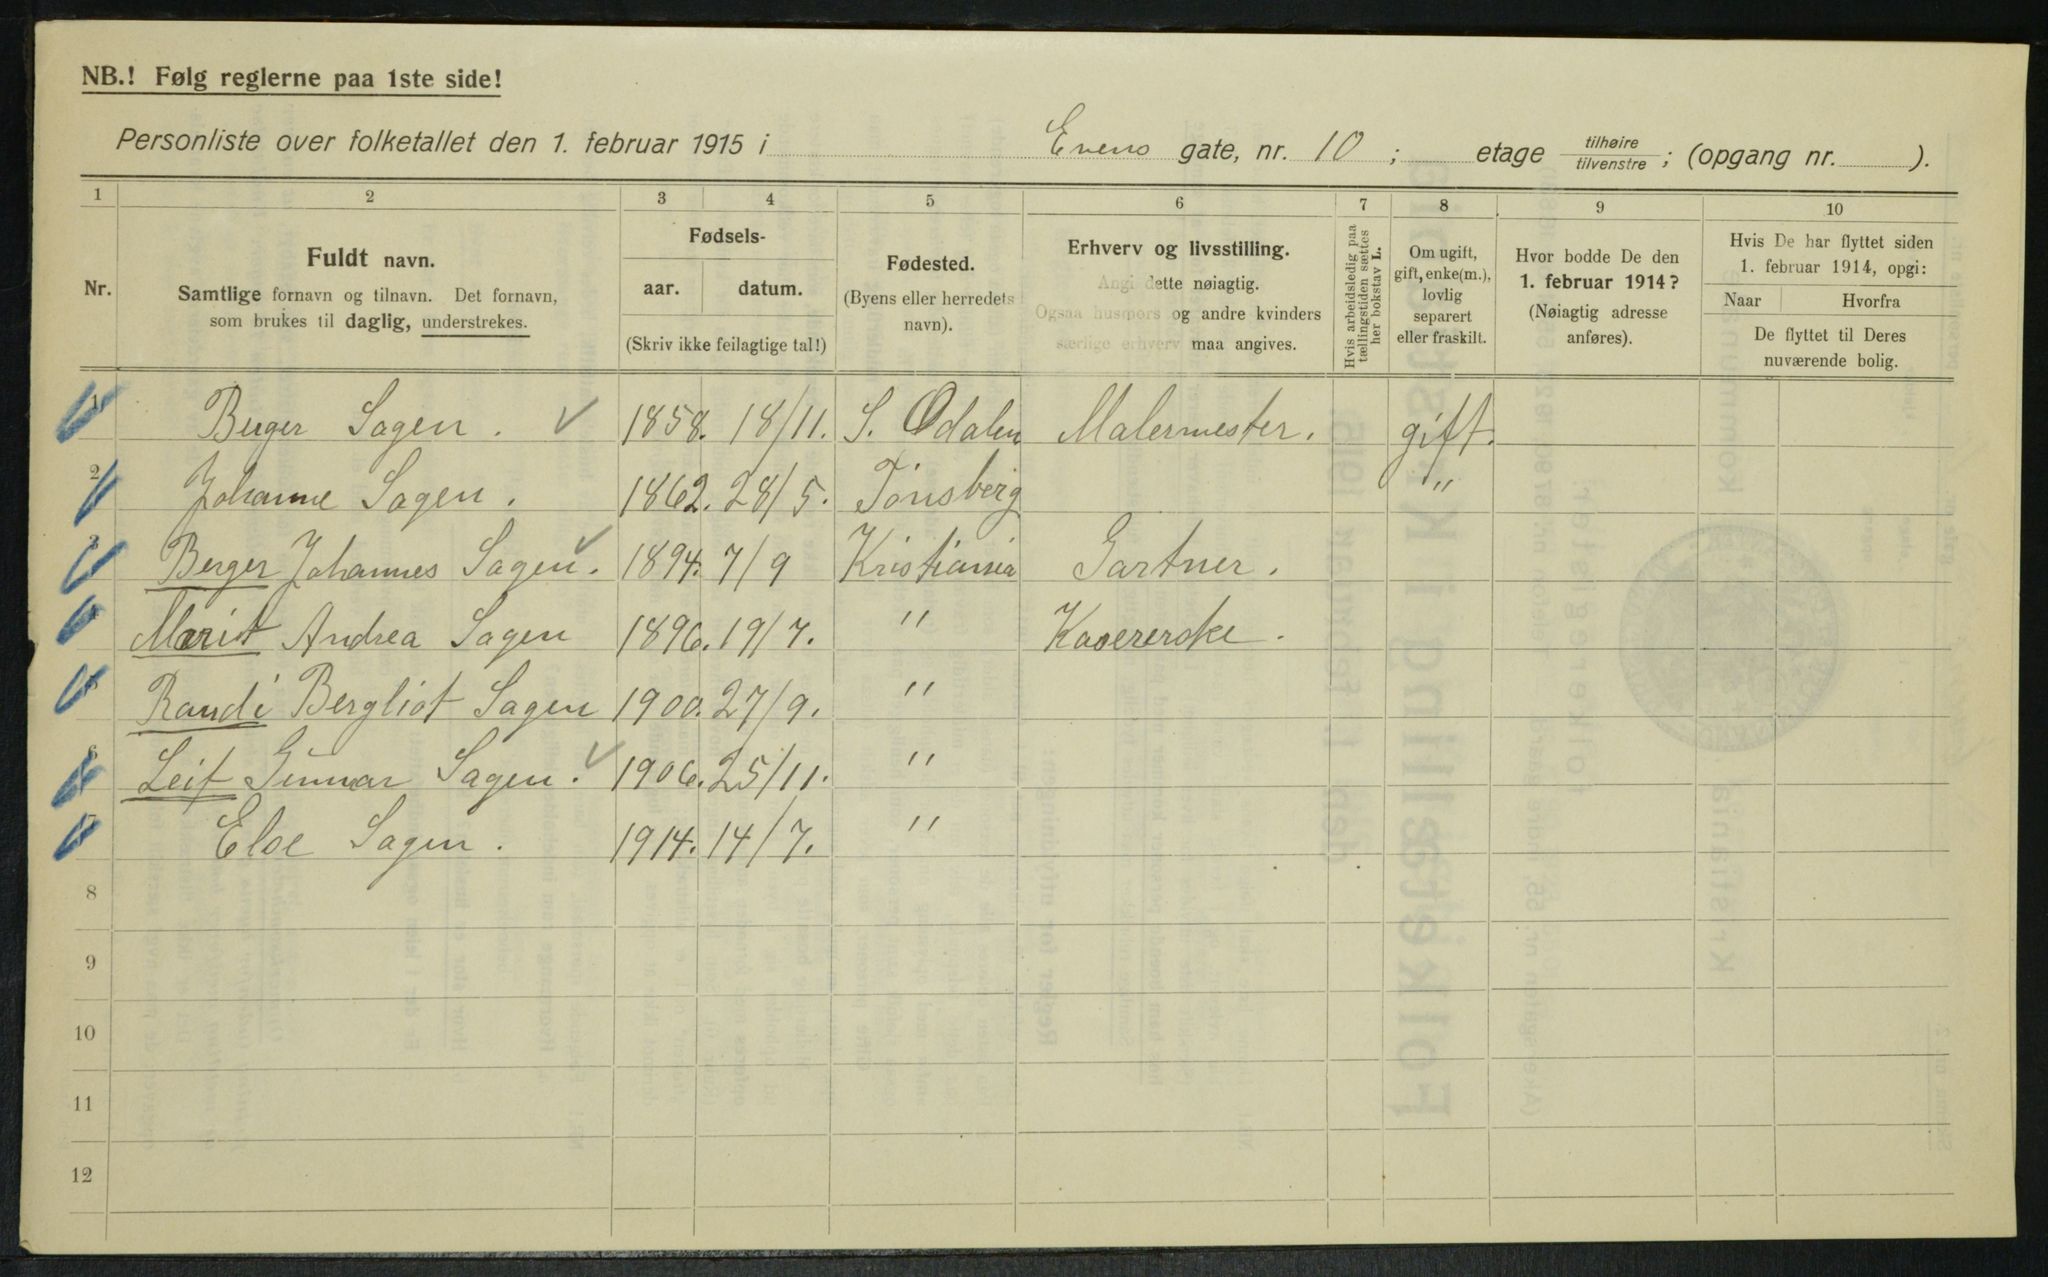 NB.! Følg reglerne paa 1ste side!
Personliste over folketallet den 1. februar 1915 i Evens gate, nr. 10 ; etage tilhøire tilvenstre ; (opgang nr. ).
1 2 3 4 5 6 7 8 9 10
Nr.
Fuldt navn.
Samtlige fornavn og tilnavn. Det fornavn,
som brukes til daglig, understrekes.
Fødsels-
aar. datum.
(Skriv ikke feilagtige tal!)
Fødested.
(Byens eller herredets
navn).
Erhverv og livsstilling.
Angi dette nøiagtig.
Ogsaa husmors og andre kvinders
særlige erhverv maa angives.
Hvis arbeidsledig paa
tællingstiden sættes
her bokstav L.
Om ugift,
gift, enke(m.),
lovlig
separert
eller fraskilt.
Hvor bodde De den
1. februar 1914?
(Nøiagtig adresse
anføres).
Hvis De har flyttet siden
1. februar 1914, opgi:
Naar Hvorfra
De flyttet til Deres
nuværende bolig.
1 Berger Sagen. 1858. 18/11. S. Odalen Malermester. gift.
2 Johanne Sagen. 1862. 28/5. Tönsberg "
3 Berger Johannes Sagen. 1894. 7/9 Kristiania Gartner.
4 Marit Andrea Sagen 1896. 19/7. "
5 Randi Bergliot Sagen 1900. 27/9. "
6 Leif Gunnar Sagen. 1906. 25/11. "
7 Else Sagen. 1914. 14/7. "
8
9
10
11
12